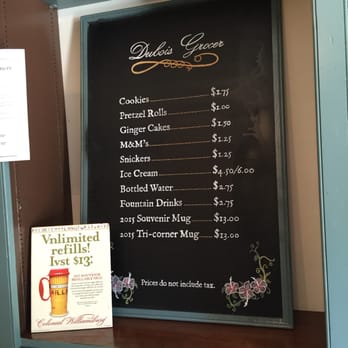 Dubois Grocer
Cookies $1.75
Pretzel Rolls $1.00
Ginger Cakes $1.50
M&M's $1.25
Snickers $1.25
Ice Cream $4.50/6.00
Bottled Water $2.75
Fountain Drinks $2.75
2015 Souvenir Mug $13.00
2015 Tri-corner Mug $13.00
Prices do not include tax.
Vnlimited
refills!
Ivst $13:
Colonial Williamsburg